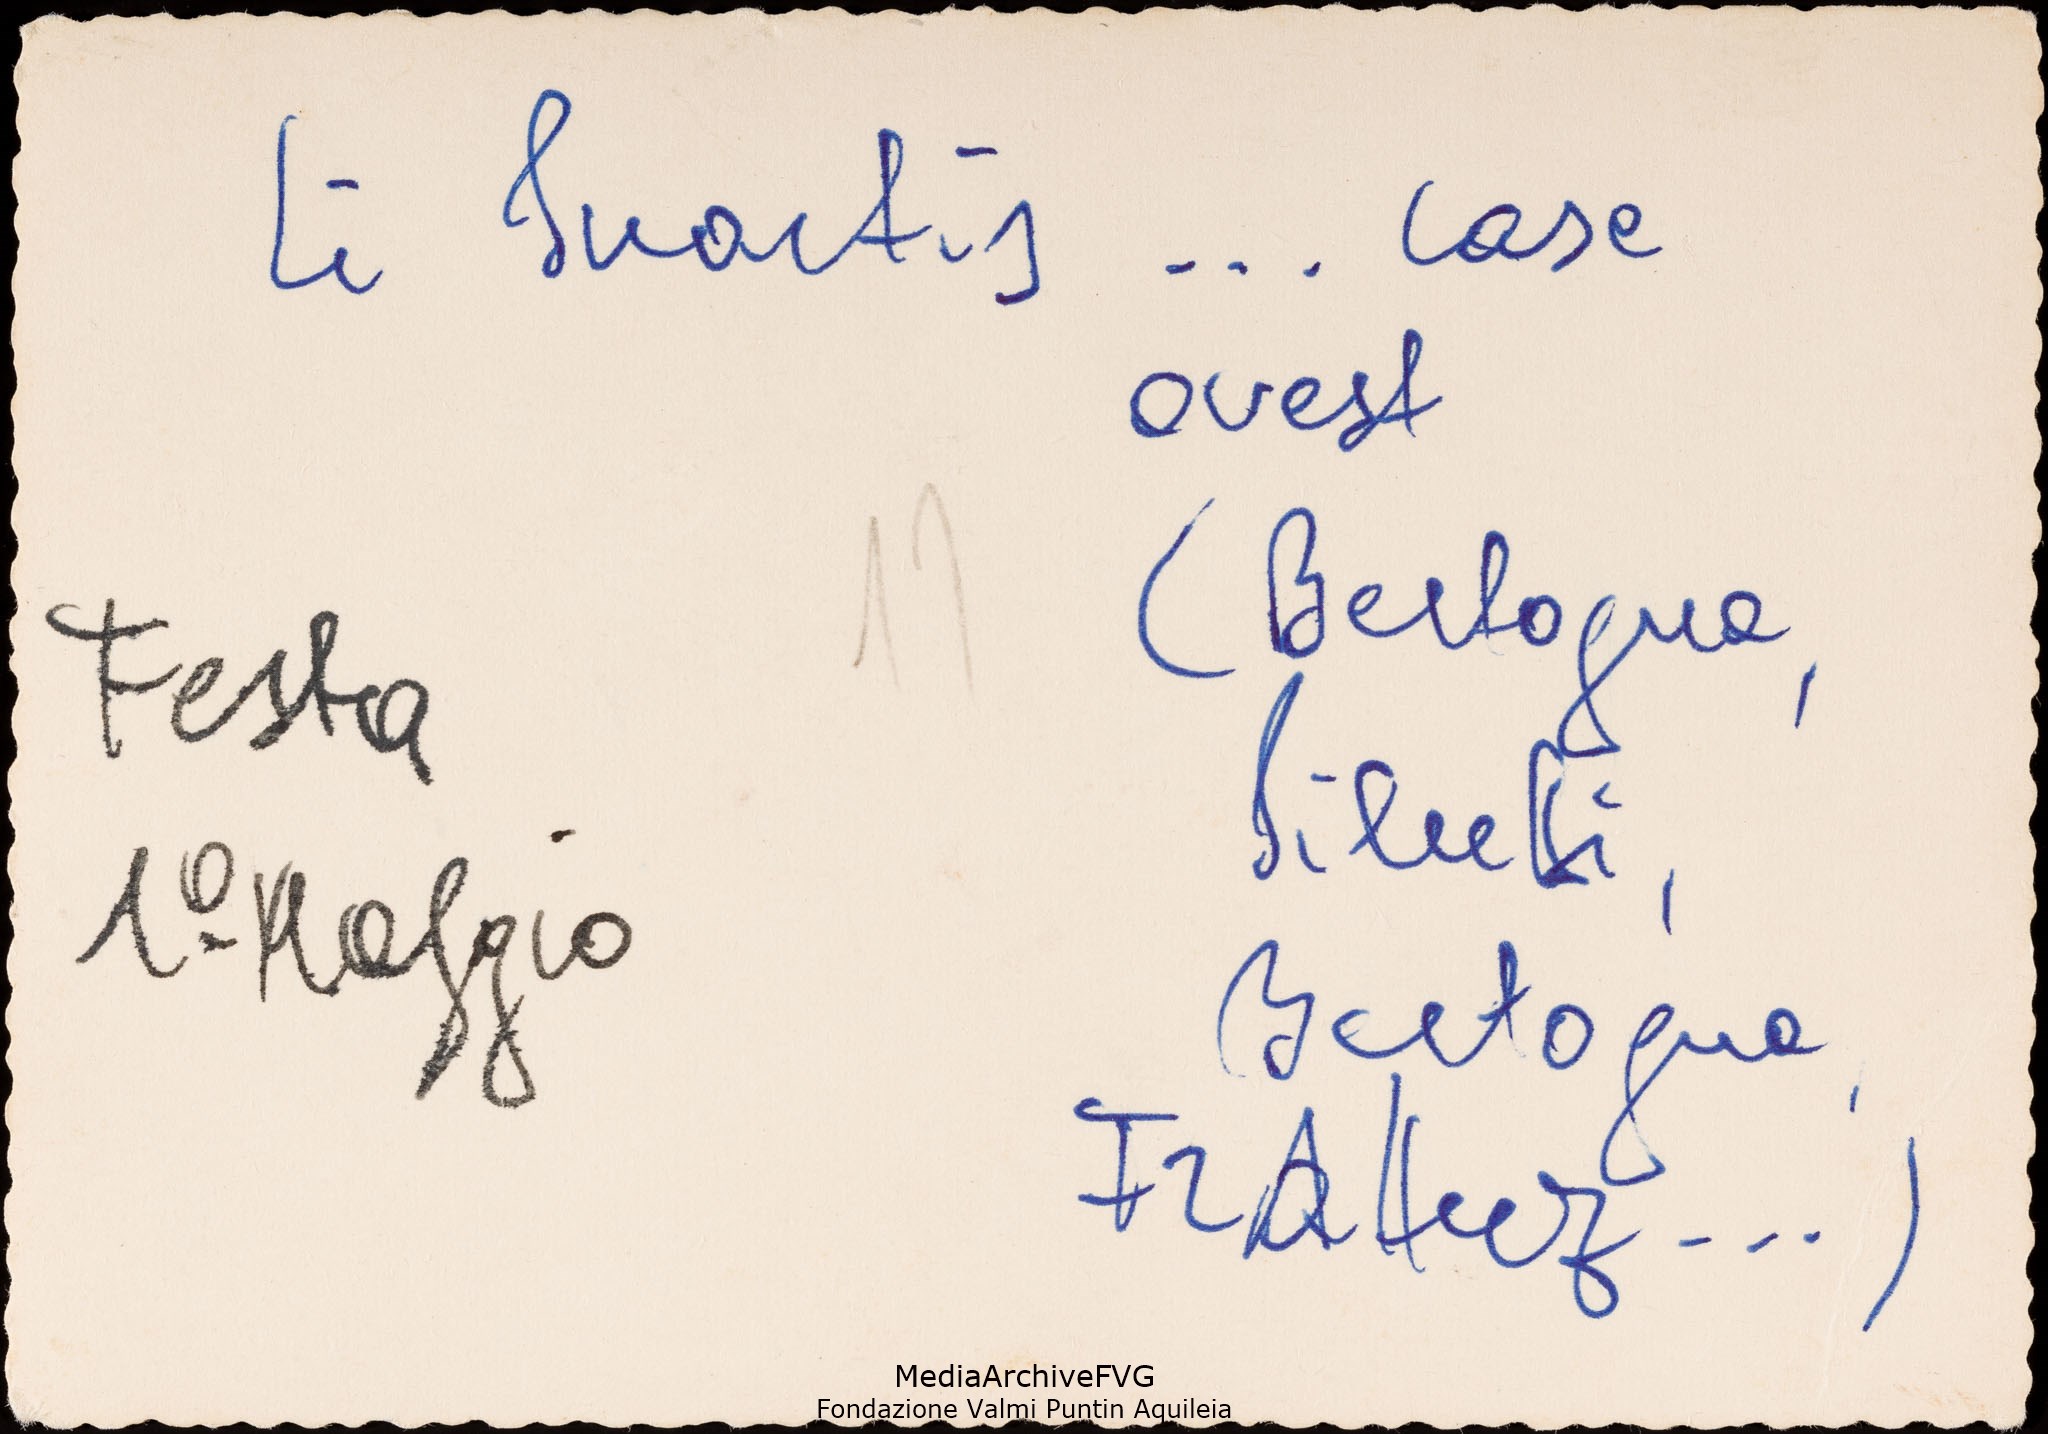 Li Suartis ... case
ovest
17
(Bertogna,
Festa
1° Maggio
Bertogna,
FrAttuz ...)
MediaArchiveFVG
Fondazione Valmi Puntin Aquileia